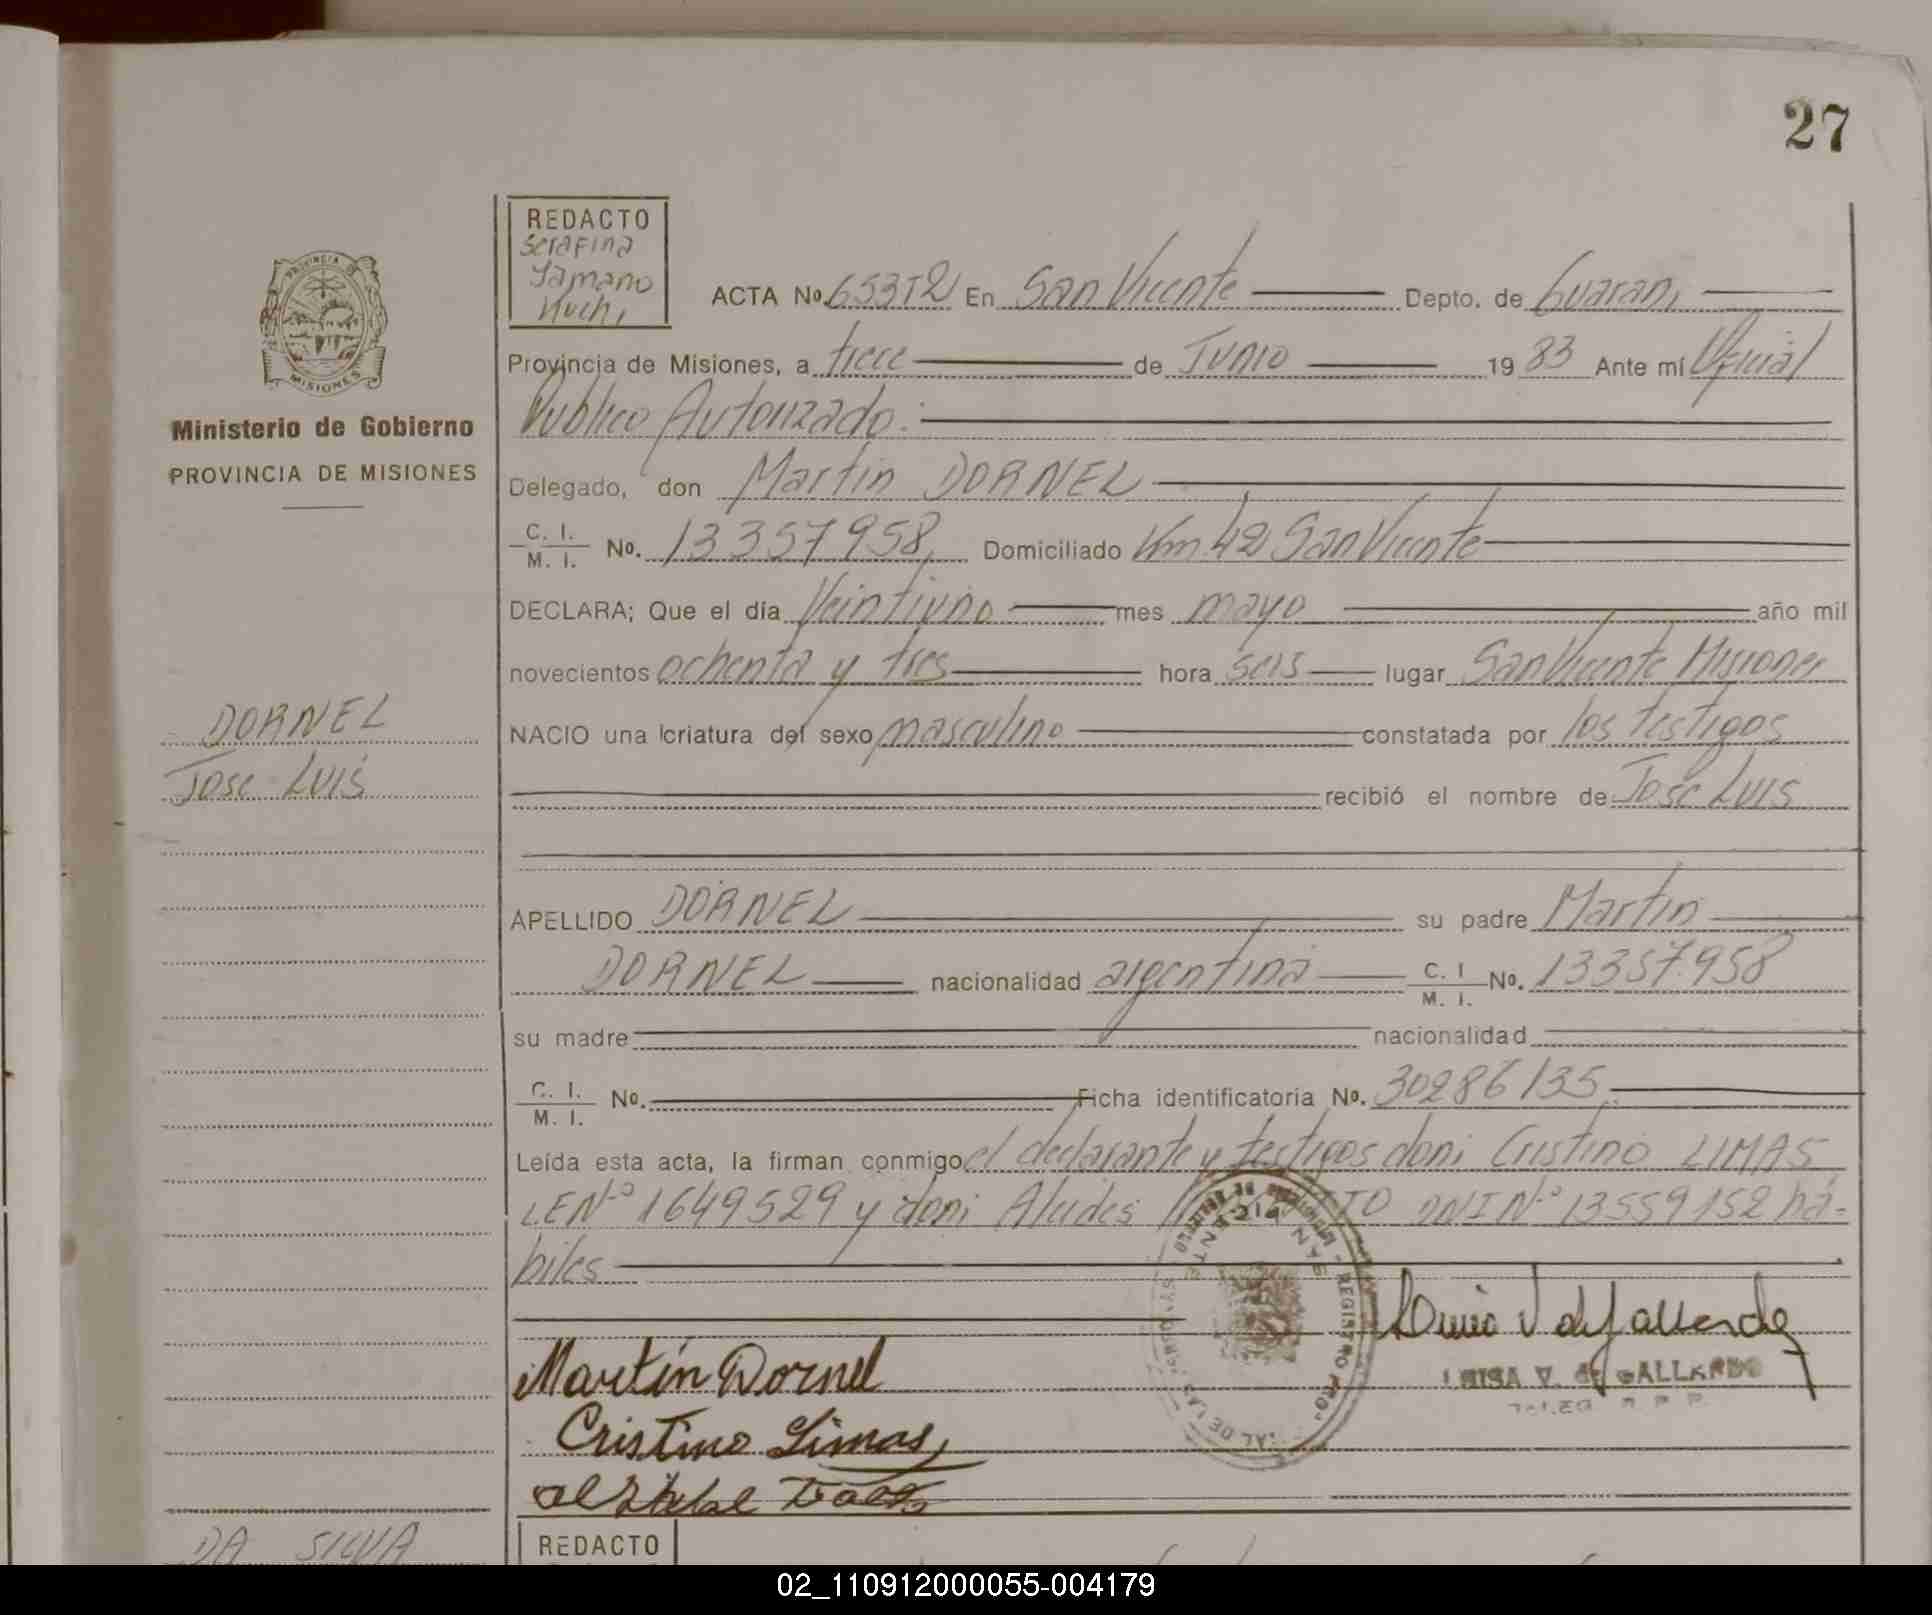 27
REDACTO
Serafina
Yamano
Kuchi
ACTA No. 653T2 En San Vicente Depto. de Guarani
PROVINCIA DE
MISIONES
Provincia de Misiones, a trece de Junio 19 83 Ante mí Oficial
Publico Autorizado.
Ministerio de Gobierno
PROVINCIA DE MISIONES
Delegado, don Martin DORNEL
C. I.
M. I. No. 13357958, Domiciliado Km 42 San Vicente
DECLARA; Que el día Veintiuno mes mayo año mil
novecientos ochenta y tres hora seis lugar San Vicente Misiones
DORNEL
Jose Luis
NACIO una criatura del sexo masculino constatada por los testigos
recibió el nombre de José Luis
APELLIDO DORNEL su padre Martin
DORNEL nacionalidad argentina C. I.
M. I. No. 13357.958
su madre nacionalidad
C. I.
M. I. No. Ficha identificatoria No. 30286135
Leída esta acta, la firman conmigo el declarante y testigos don: Cristino LIMAS
LE Nº 1649529 y don: Alcides DNI Nº 13559152 há-
biles
SAN VICENTE
REGISTRO PRO
AL DE LAS PERSONAS
V. de GALLARDO
Martín Dornel
Cristino Limas
REDACTO
DA SILVA
02_110912000055-004179